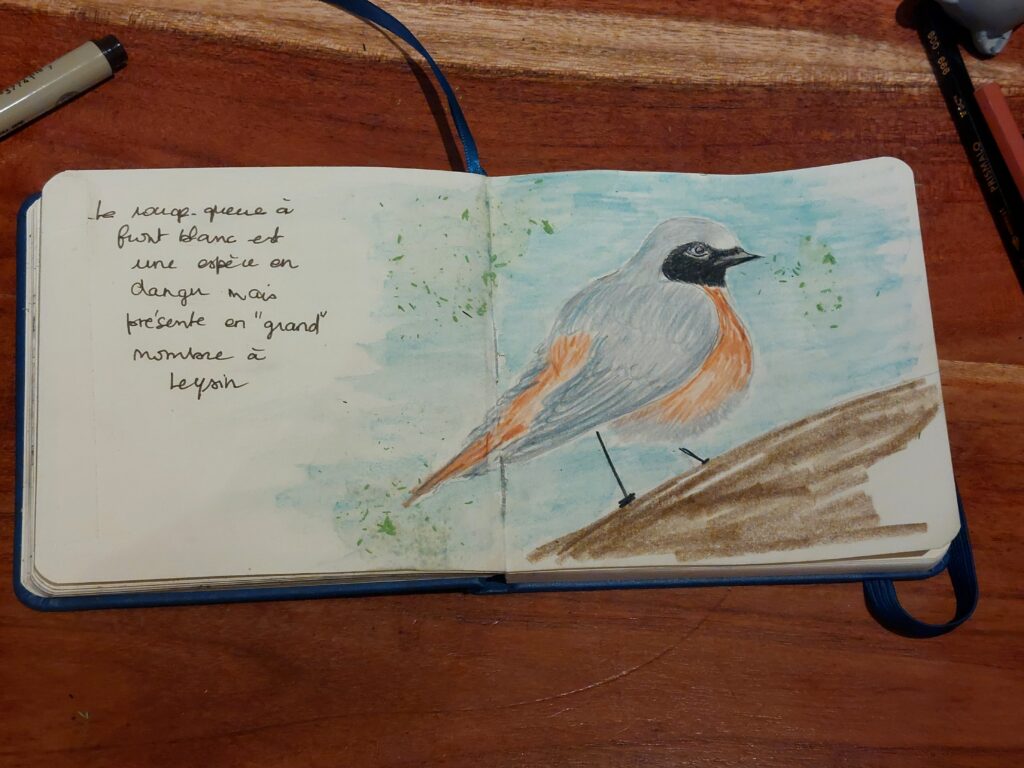 Le rouge-queue à
front blanc est
une espèce en
danger mais
présente en "grand"
nombre à
Leysin
999.008
PRISMALO